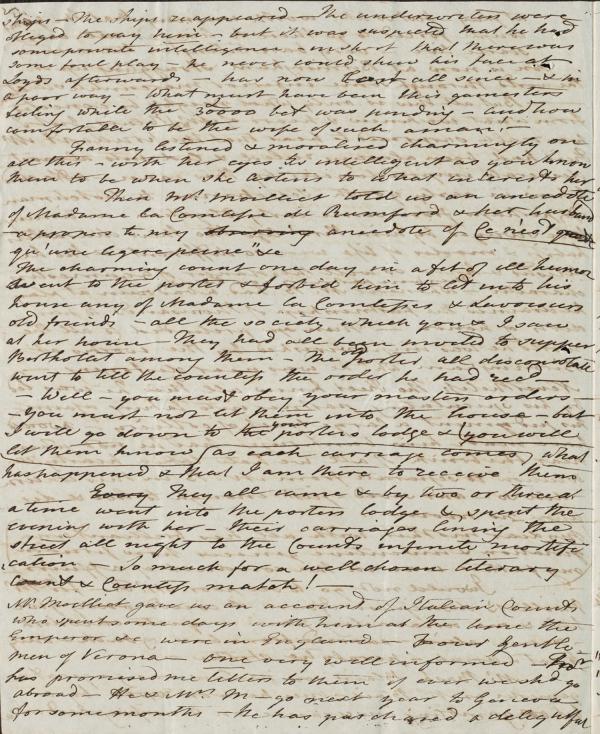 ships – The ships reappeared – The underwriters were
obliged to pay him – but it was suspected that he had
some private intelligence – in short that there was
some foul play – he never could shew his face at
Loyds afterwards – has now lost all since – & is
a poor way – What must have been this gamesters
feeling while the 30000 bet was pending – and how
comfortable to be the wife of such a man! –
Fanny listened & moralised charmingly on
all this – with her eyes as intelligent as you know
them to be when she listens to what interests her
Then Mr. Moilliet told us an anecdote
of Madame la Comtesse de Rumford & her husband
– a propos to my anecdote of Ce n'est
qu'une legere peine" &c
The charming count one day in a fit of ill humor
went to the porter & forbid him to let into his
house any of Madame la Comtesses & Lavoisiers
old friends – all the society which you & I saw
at her house – They had all been invited to supper
Berthollet among them – The old porter all disconsolate
went to tell the countess the order he had recd –
– Well – you must obey your masters orders –
– you must not let them into the house – but
I will go down to your porters lodge & (you will
let them know (as each carriage comes) what
has happened & that I am there to receive them
Every They all came & by two or three at
a time went into the porters lodge & spent the
evening with her – their carriages lining the
street all night to the Counts infinite mortifi
cation – So much for a well chosen literary
Count & Countess match! –
Mr. Moilliet gave us an account of Italian Counts
who spent some days with him at the time the
Emperor &c were in England Four gentle
men of Verona – one very well informed –
has promised me letters to them if ever we shd. go
abroad – He & Mrs. M – go next year to Geneva
for some months – he has purchased a delightful